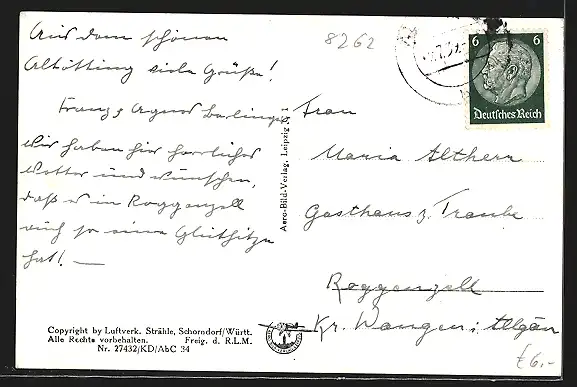 Aus dem schönen
Altötting viele Grüße!
Franz & Agnes
Wir haben hier herrliches
Wetter und wünschen,
daß es in Roggenzell
auch so eine Gluthitze
hat! —
8262
6 6
Deutsches Reich
Aero-Bild-Verlag, Leipzig
Frau
Maria Althern
Gasthaus z. Traube
Roggenzell
Kr. Wangen i. Allgäu
Copyright by Luftverk. Strähle, Schorndorf/Württ.
Alle Rechte vorbehalten. Freig. d. R.L.M.
Nr. 27432/KD/AbC 34
£6.-